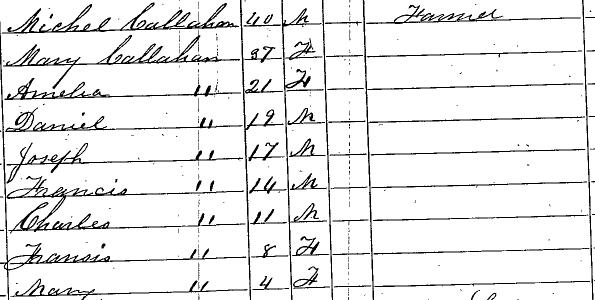 Michel Callahan 40 M Farmer
Mary Callahan 37 F
Amelia " 21 F
Daniel " 19 M
Joseph " 17 M
Francis " 14 M
Charles " 11 M
Fransis " 8 F
Mary " 4 F